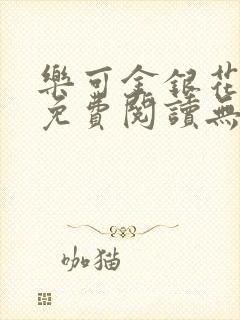 樂可金銀花
免費閱讀無
咖猫